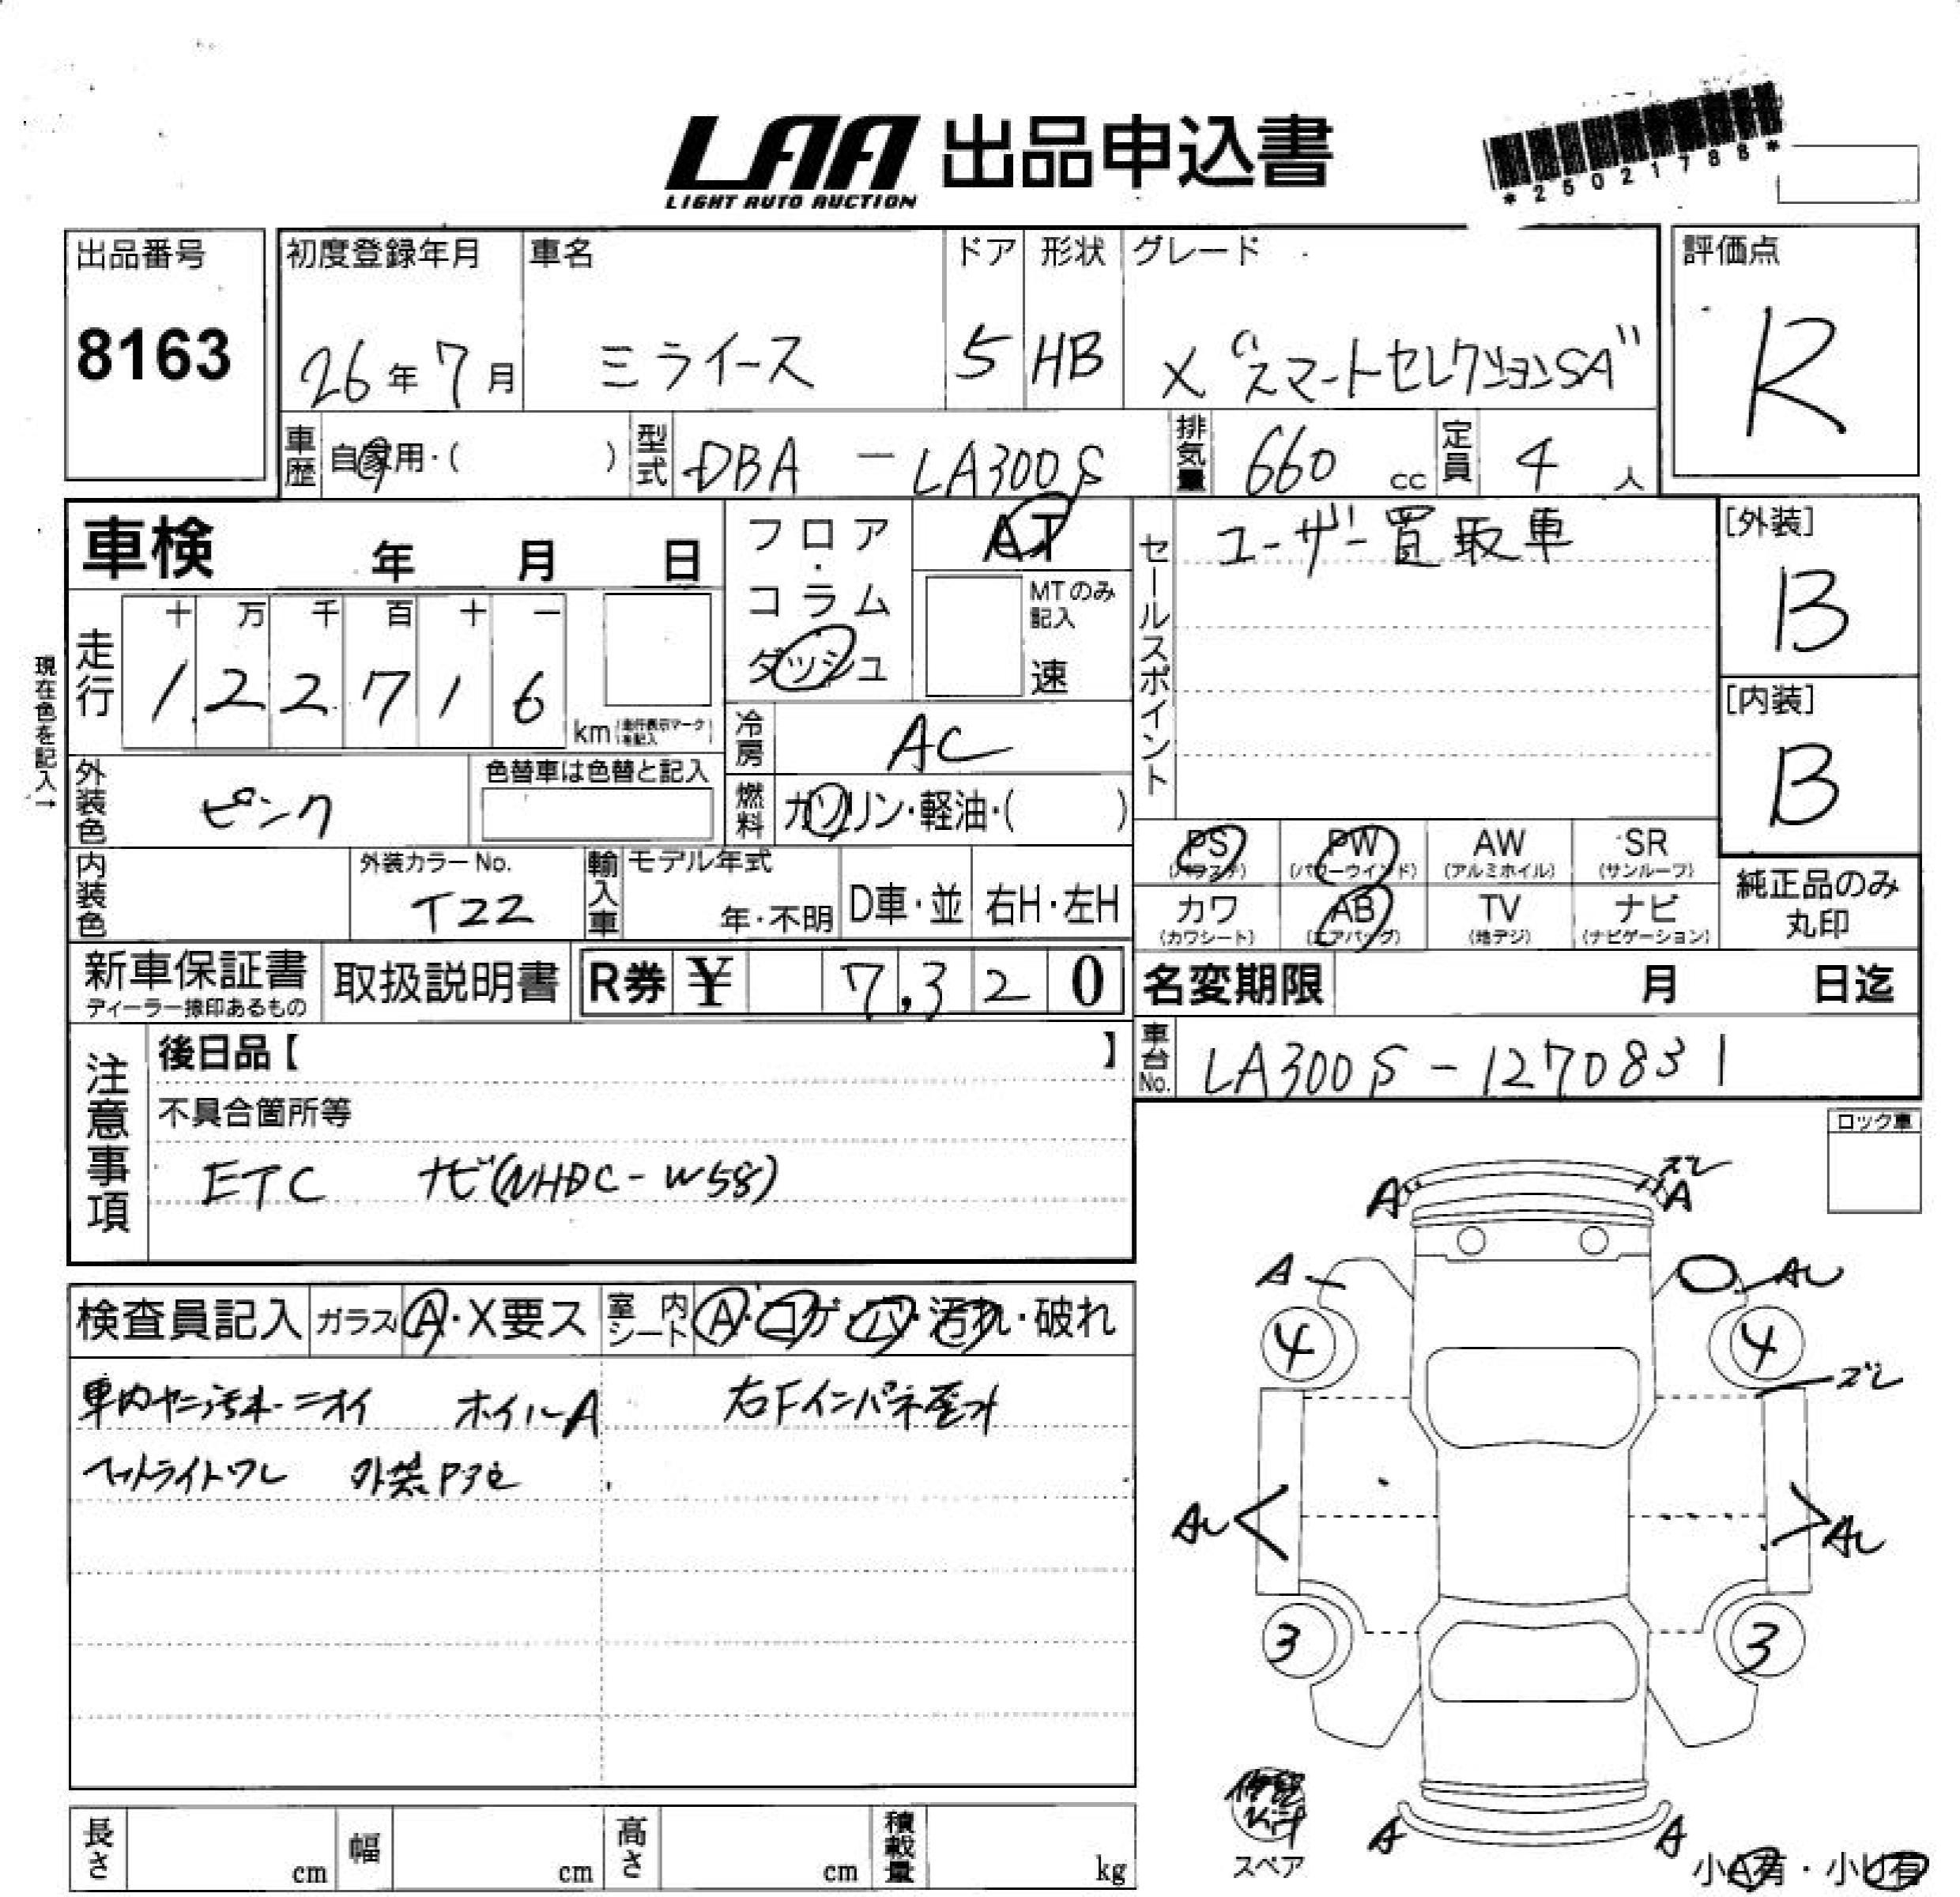 LAA 出品申込書
LIGHT AUTO AUCTION
*25021788*
出品番号
8163
初度登録年月
26年7月
車名
ミライース
ドア
5
形状
HB
グレード
X "スマートセレクションSA"
評価点
R
車歴 自家用・( )
型式 DBA - LA300S
排気量 660 cc
定員 4 人
車検 年 月 日
現在色を記入→
走行
十 万 千 百 十 一
1 2 2 7 1 6
km (走行表示マークを記入)
フロア・コラム
ダッシュ
AT
MTのみ記入
速
冷房 AC
燃料 ガソリン・軽油・( )
セールスポイント
ユーザー買取車
[外装]
B
[内装]
B
外装色 ピンク
色替車は色替と記入
内装色
外装カラーNo.
T22
輸入車
モデル年式
年・不明
D車・並
右H・左H
PS (パワステ)
PW (パワーウインド)
AW (アルミホイル)
SR (サンルーフ)
カワ (カワシート)
AB (エアバッグ)
TV (地デジ)
ナビ (ナビゲーション)
純正品のみ
丸印
新車保証書
ディーラー捺印あるもの
取扱説明書
R券 ¥ 7,320
名変期限 月 日迄
車台No. LA300S-1270831
注意事項
後日品【 】
不具合箇所等
ETC ナビ(NHDC-W58)
ロック車
検査員記入
ガラス A・X要ス
室内シート A・コゲ・穴・汚れ・破れ
車内ヤニ汚れ・ニオイ ホイルA 右Fインパネ歪み
ヘットライトワレ 外装
A ズレ A
A AU
4 4
ズレ
AU AU
3 3
A A
修理Kit
スペア
小A有・小U有
長さ cm
幅 cm
高さ cm
積載量 kg